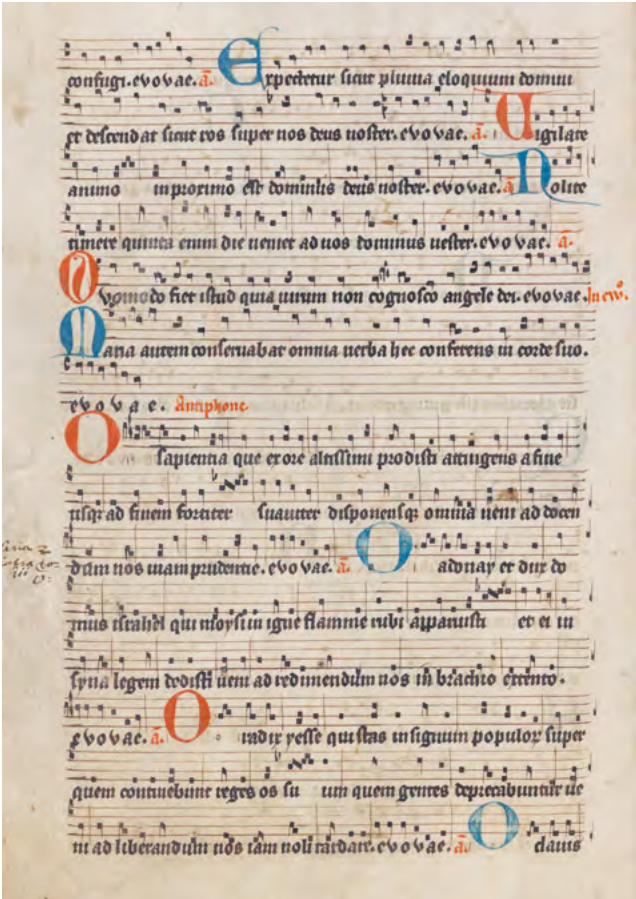 confugi. evovae. a. Expectetur sicut pluuia eloquium domini
et descendat sicut ros super nos deus noster. evovae. a. Uigilate
animo in proximo est dominus deus noster. evovae. a. Nolite
timere quinta enim die ueniet ad uos dominus uester. evovae. a.
Quomodo fiet istud quia uirum non cognosco angele dei. evovae. In ev̅o.
Maria autem conseruabat omnia uerba hec conferens in corde suo.
evovae. Antiphone
O sapientia que ex ore altissimi prodisti attingens a fine
usqꝫ ad finem fortiter suauiter disponensqꝫ omnia ueni ad docen
dum nos uiam prudentie. evovae. a. O adonay et dux do
mus israhel qui moysi in igne flamme rubi apparuisti et ei in
syna legem dedisti ueni ad redimendum nos in brachio extento.
evovae. a. O radix yesse qui stas in signum populoꝝ super
quem continebunt reges os suum quem gentes deprecabuntur ue
ni ad liberandum nos iam noli tardare. evovae. a. O clauis